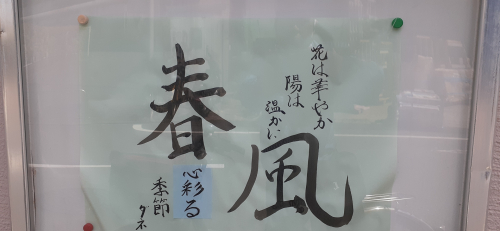 花は華やか
陽は
温かい
風
春
心彩る
季節
ダネ